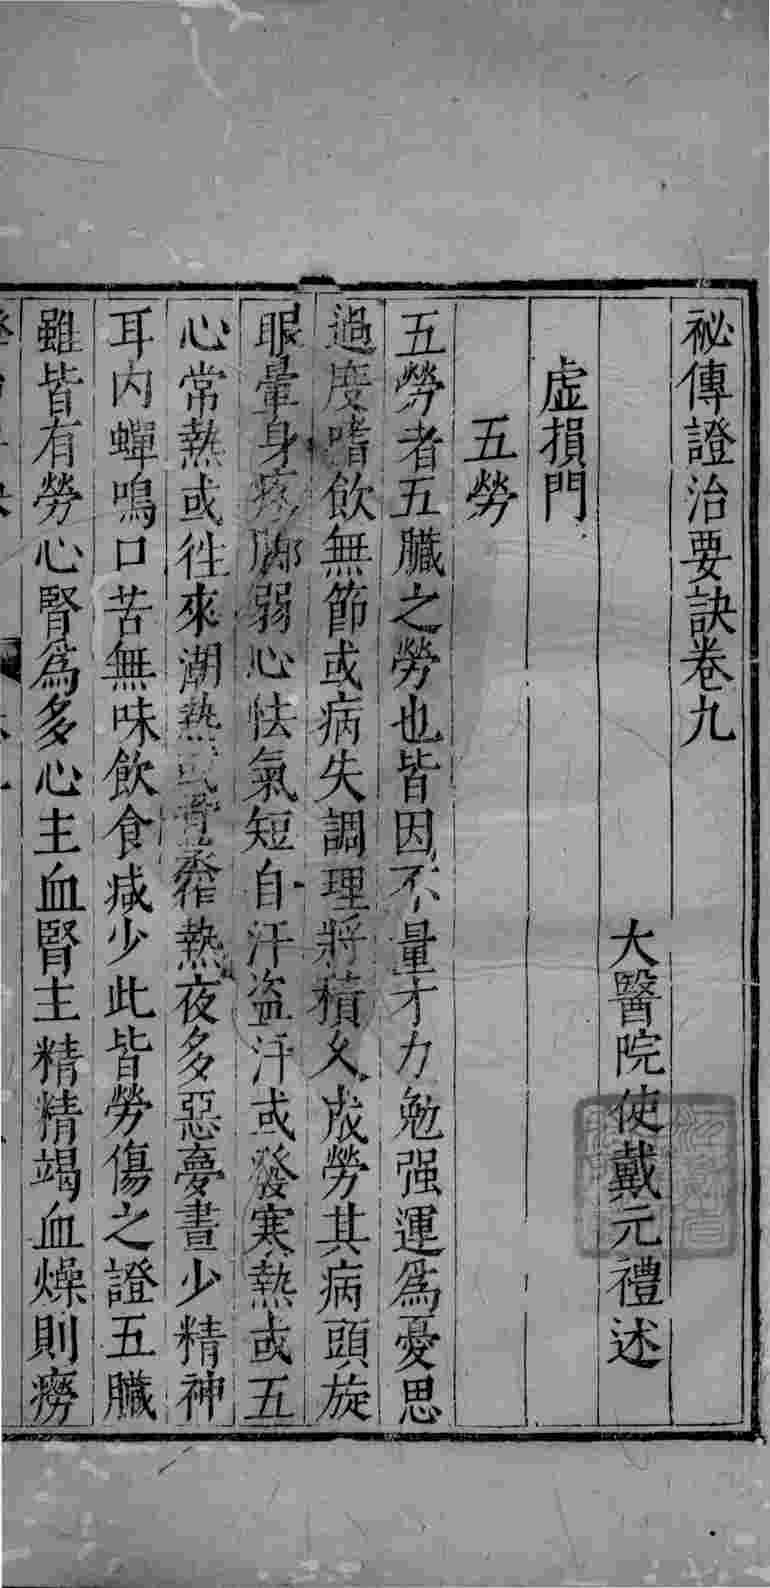 祕傳證治要訣卷九
大醫院使戴元禮述
虛損門
五勞
五勞者五臟之勞也皆因不量才力勉强運爲憂思
過度嗜飲無節或病失調理將積久成勞其病頭旋
眼暈身疼脚弱心怯氣短自汗盜汗或發寒熱或五
心常熱或徃來潮熱或骨蒸作熱夜多惡夢晝少精神
耳内蟬鳴口苦無味飲食减少此皆勞傷之證五臟
雖皆有勞心腎爲多心主血腎主精精竭血燥則癆